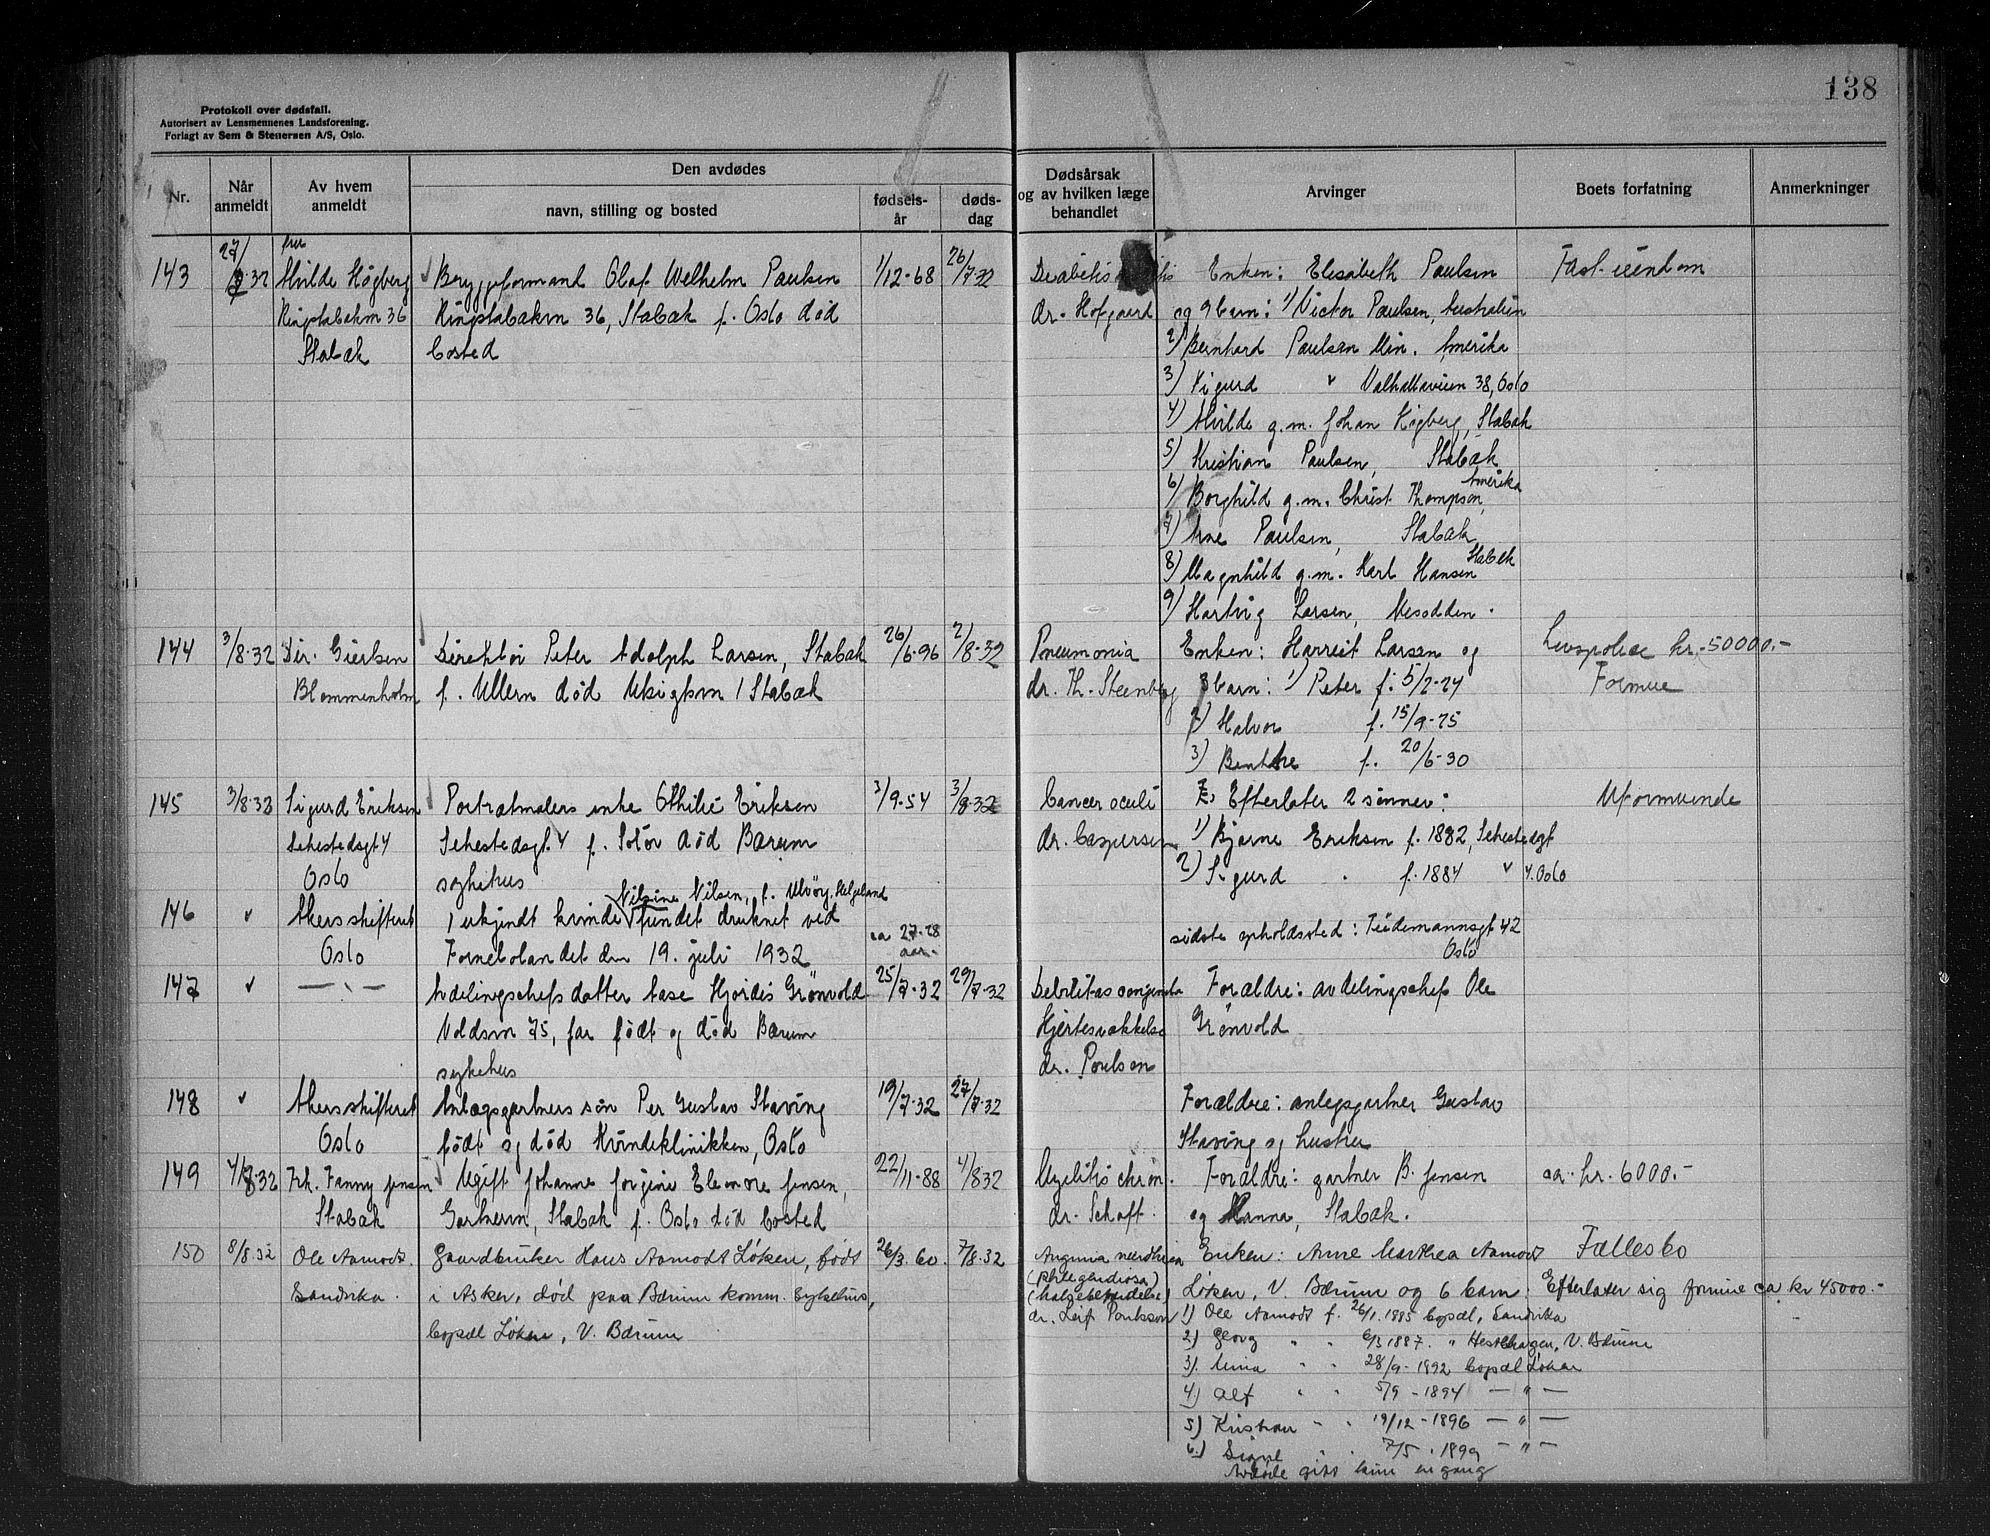 138
Protokoll over dødsfall.
Autorisert av Lensmennenes Landsforening.
Forlagt av Sem & Stenersen A/S, Oslo.
Nr.
Når anmeldt
Av hvem anmeldt
Den avdødes
navn, stilling og bosted
fødsels-år
døds-dag
Dødsårsak og av hvilken læge behandlet
Arvinger
Boets forfatning
Anmerkninger
143 27/7·32 fru Alvilde Høgberg Bryggeformand Olaf Wilhelm Paulsen 1/12-68 26/7-32 Enken: Elisabeth Paulsen Fast eiendom
Ringstabækvn 36 Ringstabækvn 36, Stabæk f. Oslo død dr. Hofgaard og 9 barn: 1) Victor Paulsen, Australien
Stabæk bosted 2) Bernhard Paulsen Min. Amerika
3) Sigurd " Valhallaveien 38, Oslo
4) Alvilde g.m. Johan Høgberg, Stabæk
5) Kristian Paulsen, Stabæk
6) Borghild g.m. Christ Thompson, Amerika
7) Arne Paulsen, Stabæk
8) Magnhild g.m. Karl Hansen Stabæk
9) Hartvig Larsen, Nesodden.
144 3/8·32 Dir. Giertsen Direktør Peter Adolph Larsen, Stabæk 26/6-96 2/8-32 Pneumonia Enken: Harriet Larsen og Livspolise kr. 50000.-
Blommenholm f. Ullern død Stabæk dr. Th. Steenberg 3 barn: 1) Peter f. 5/2-24 Formue
2) Halvor f. 15/9-25
3) Benthe f. 20/6-30
145 3/8·32 Sigurd Eriksen Portrætmalers enke Othilie Eriksen 3/9-54 3/8·32 Cancer oculi Efterlater 2 sønner: Uformuende
Sehestedsgt 4 Sehestedsgt. 4 f. Solør død Bærum dr. Caspersen 1) Bjarne Eriksen f. 1882, Sehestedsgt
Oslo sykehus 2) Sigurd " f. 1884 " 4. Oslo
Nilsine Nilsen, f. Helgeland
146 " Akersskifteret 1 ukjendt kvinde fundet druknet ved ca 27-28 aar. sidste opholdssted: Tiedemannsgt 42
Oslo Fornebolandet den 19. juli 1932 Oslo
147 " — " — Avdelingschefs datter Aase Hjørdis Grønvold 25/7·32 29/7·32 Debilitas congenita Forældre: avdelingschef Ole
Voldsvn 75, født og død Bærum Hjertesvækkelse Grønvold
sykehus dr. Poulson
148 " Akersskifteret Anlægsgartners søn Per Gustav Staving 19/7·32 27/7·32 Forældre: anlegsgartner Gustav
Oslo født og død Kvindeklinikken, Oslo Staving og hustru
149 4/8·32 Frk. Fanny Jensen Ugift Johanne Jorgine Eleonore Jensen, 22/11-88 4/8 32 Myelitis chron. Forældre: gartner B. Jensen ca. kr. 6000.-
Stabæk Gartnervn, Stabæk f. Oslo død bosted dr. Schaft. og Hanna, Stabæk.
150 8/8·32 Ole Aamodt. Gaardbruker Hans Aamodt Løken, født 26/3·60. 7/8·32 Enken: Anne Marthea Aamodt Fællesbo
Sandvika. i Asker, død paa Bærum komm. Sykehus, (halsbetændelse) Løken, V. Bærum og 6 barn: Efterlater sig formue ca kr 45000.-
bopæl Løken, V. Bærum dr. Leif Poulsson 1) Ole Aamodt f. 26/1.1885 bopæl, Sandvika
2) Georg " " 6/3 1887. " Hestehagen, V. Bærum
3) Anna " " 28/9-1892 bopæl Løken
4) Alf " " 5/9-1894 — " —
5) Kristian " " 19/12-1896 — " —
6) Signe " " 7/5·1899 — " —
Avdøde gift kun en gang